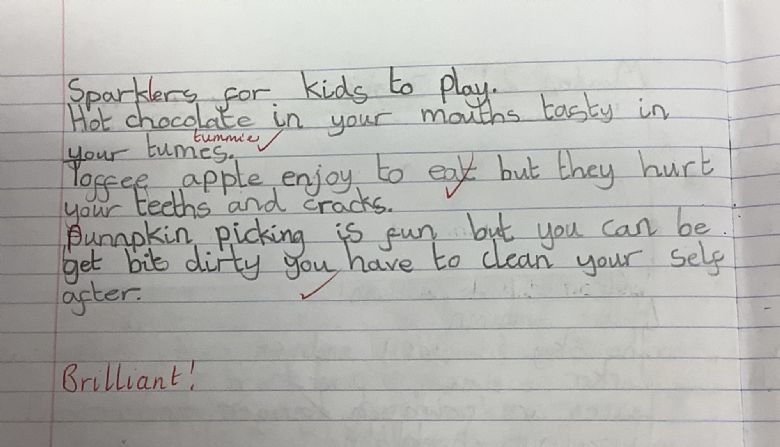 Sparklers for kids to play.
Hot chocolate in your mouths tasty in
tummie
your tumes.
Toffee apple enjoy to eat but they hurt
your teeths and cracks.
Punnpkin picking is fun but you can be
get bit dirty you have to clean your self
after.
Brilliant!